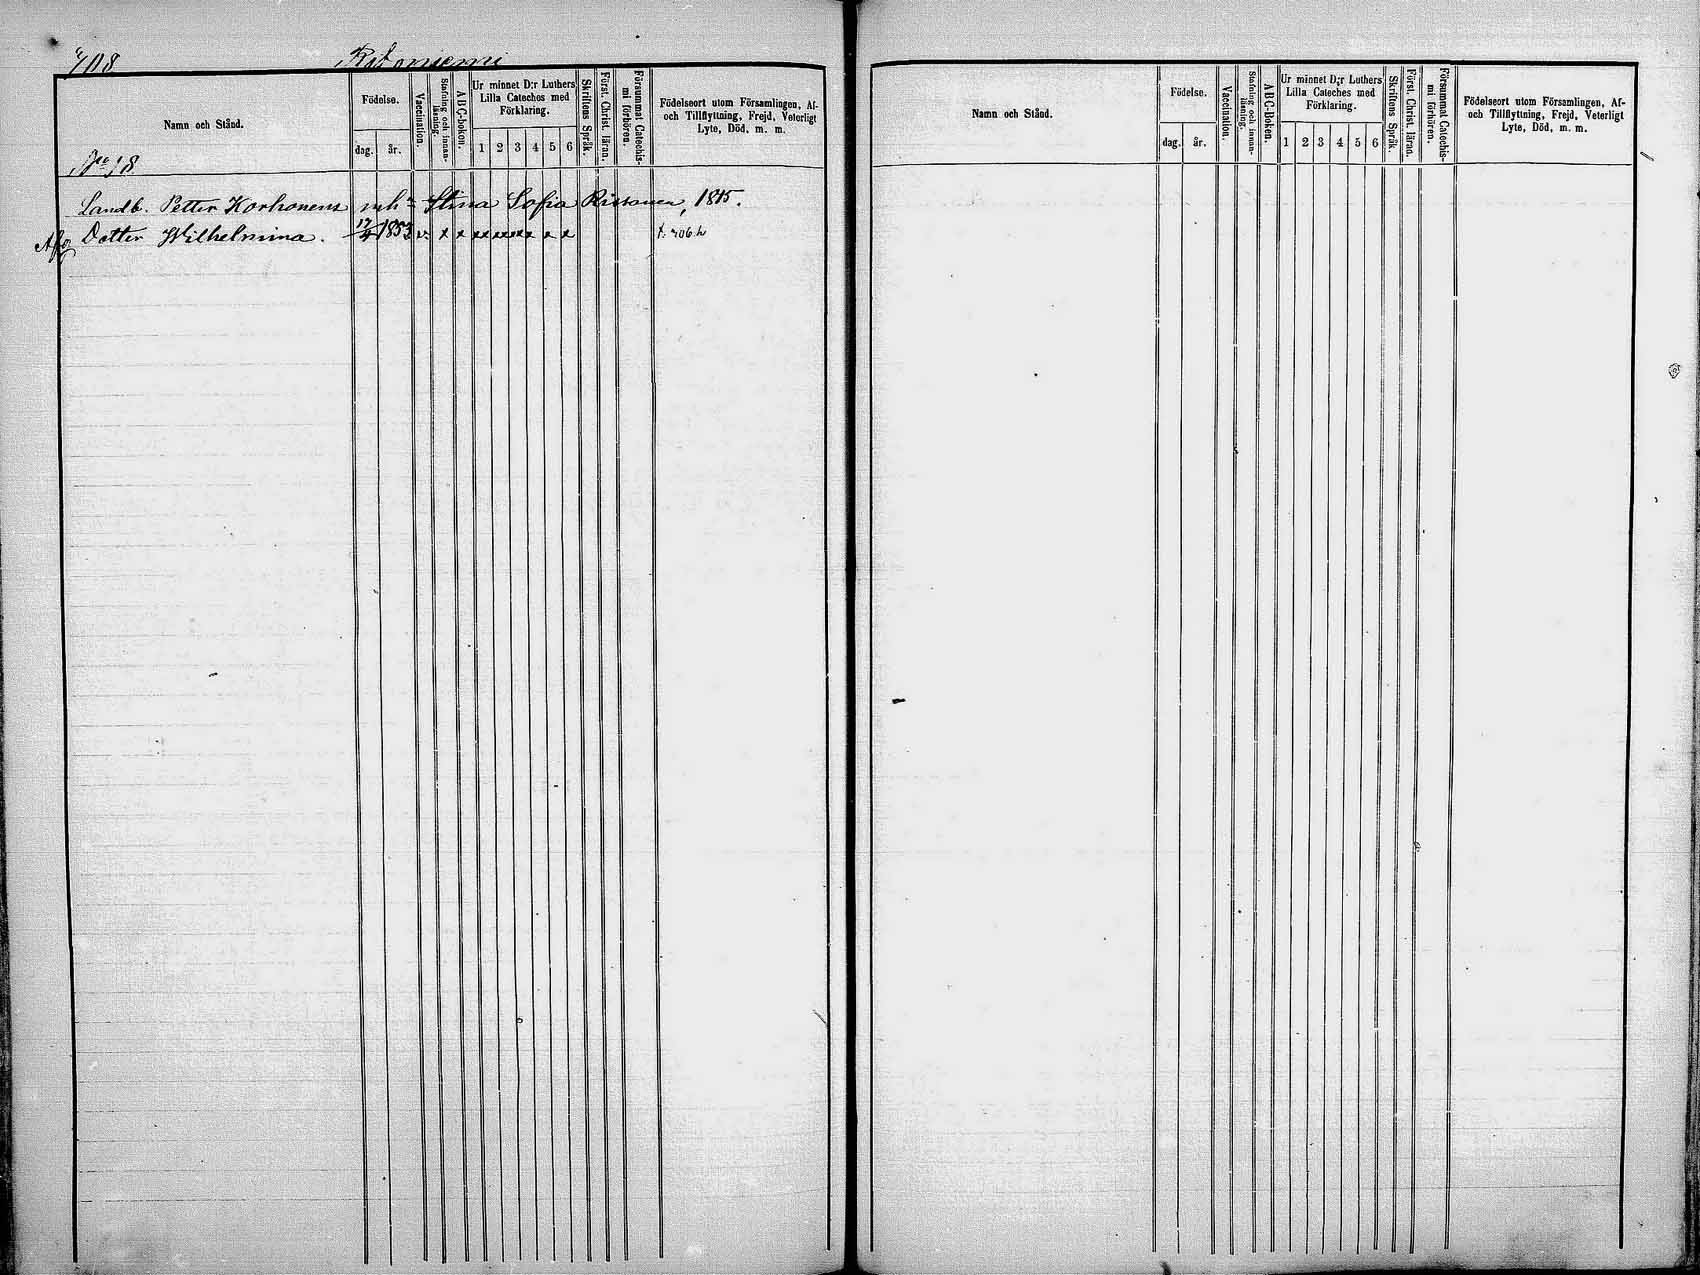 708 Ristoniemi
Namn och Stånd.
Födelse.
dag. år.
Vaccination.
Stafning och innanläsning.
ABC-Boken.
Ur minnet D:r Luthers Lilla Cateches med Förklaring.
1 2 3 4 5 6
Skriftens Språk.
Först. Christ. läran.
Försummat Catechismi förhören.
Födelseort utom Församlingen, Af- och Tillflyttning, Frejd, Veterligt Lyte, Död, m. m.
No 18
Landb. Petter Korhonens mh: Stina Sofia Ristonen, 1815.
Dotter Wilhelmina. 17/4 1853 v. x x xx xx xx x x x t. 706 b
Namn och Stånd.
Födelse.
dag. år.
Vaccination.
Stafning och innanläsning.
ABC-Boken.
Ur minnet D:r Luthers Lilla Cateches med Förklaring.
1 2 3 4 5 6
Skriftens Språk.
Först. Christ. läran.
Försummat Catechismi förhören.
Födelseort utom Församlingen, Af- och Tillflyttning, Frejd, Veterligt Lyte, Död, m. m.